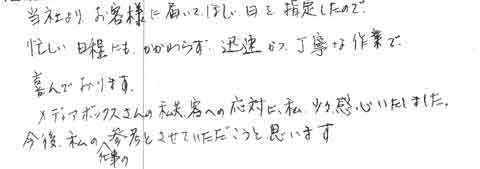 当社より お客様に届いてほしい日を指定したので
忙しい日程にもかかわらず 迅速かつ丁寧な作業で
喜んでおります。
メディアボックスさんの 客への応対に、私 少々感心いたしました。
今後、私の参考とさせていただこうと思います
仕事の